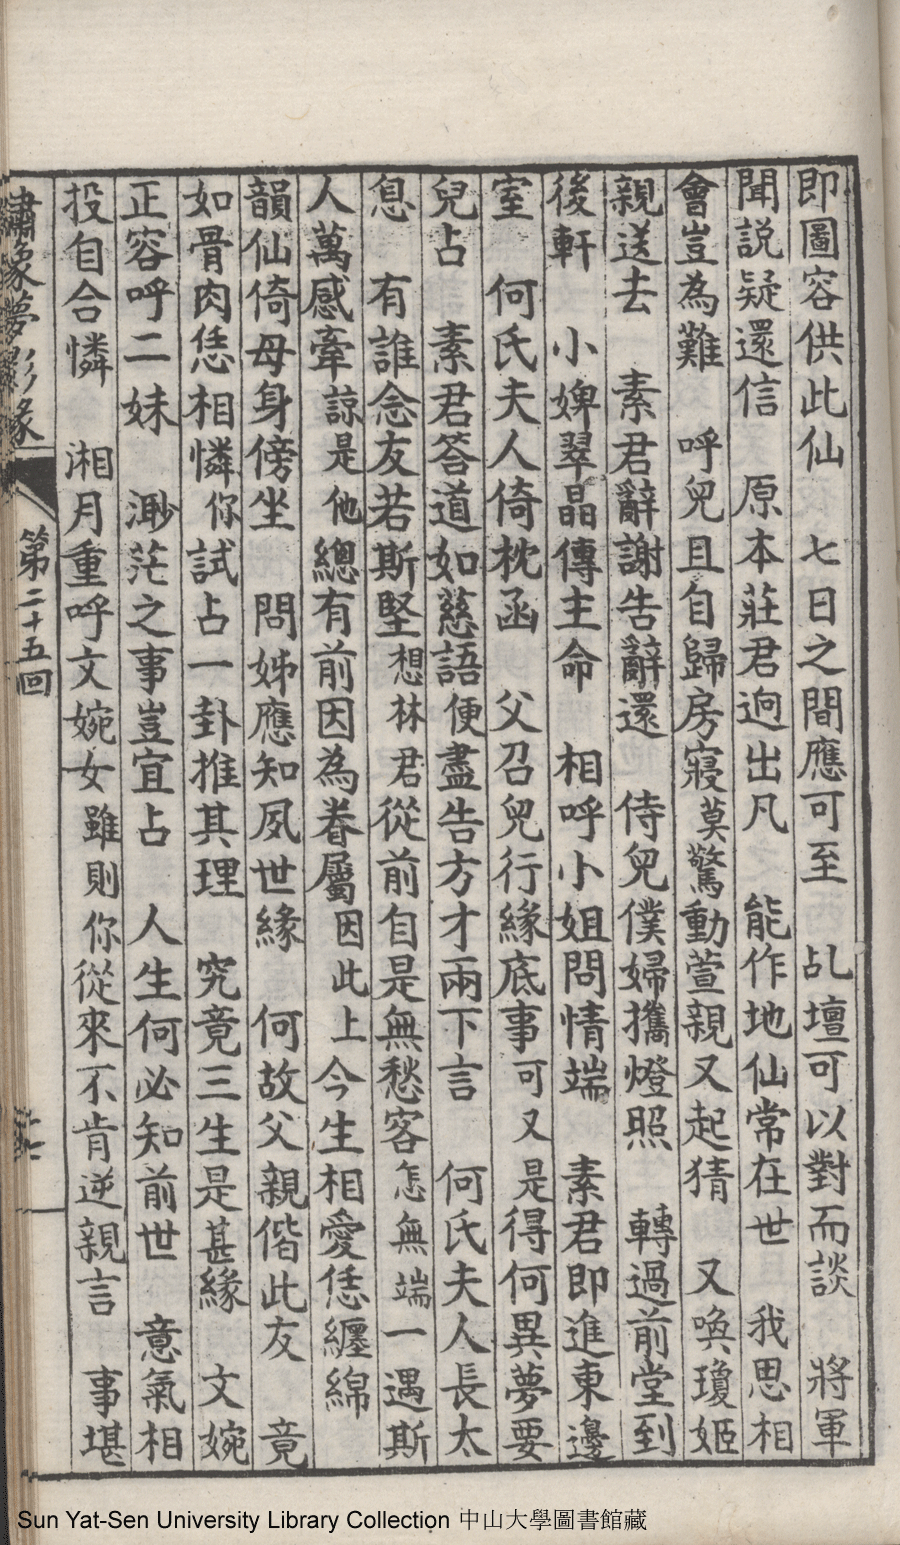 即圖容供此仙　七日之間應可至　乩壇可以對而談　將軍
聞說疑還信　原本莊君逈出凡　能作地仙常在世　我思相
會豈為難　呼兒且自歸房寢莫驚動萱親又起猜　又喚瓊姬
親送去　素君辭謝告辭還　侍兒僕婦攜燈照　轉過前堂到
後軒　小婢翠晶傳主命　相呼小姐問情端　素君即進東邊
室　何氏夫人倚枕函　父召兒行緣底事可又是得何異夢要
兒占　素君答道如慈語便盡告方才兩下言　何氏夫人長太
息　有誰念友若斯堅想林君從前自是無愁客怎無端一遇斯
人萬感牽諒是他總有前因為眷屬因此上今生相愛恁纏綿
韻仙倚母身傍坐　問姊應知夙世緣　何故父親偕此友　竟
如骨肉恁相憐你試占一卦推其理　究竟三生是甚緣　文婉
正容呼二妹　渺茫之事豈宜占　人生何必知前世　意氣相
投自合憐　湘月重呼文婉女雖則你從來不肯逆親言　事堪
繡像夢影緣　第二十五回
Sun Yat-Sen University Library Collection 中山大學圖書館藏